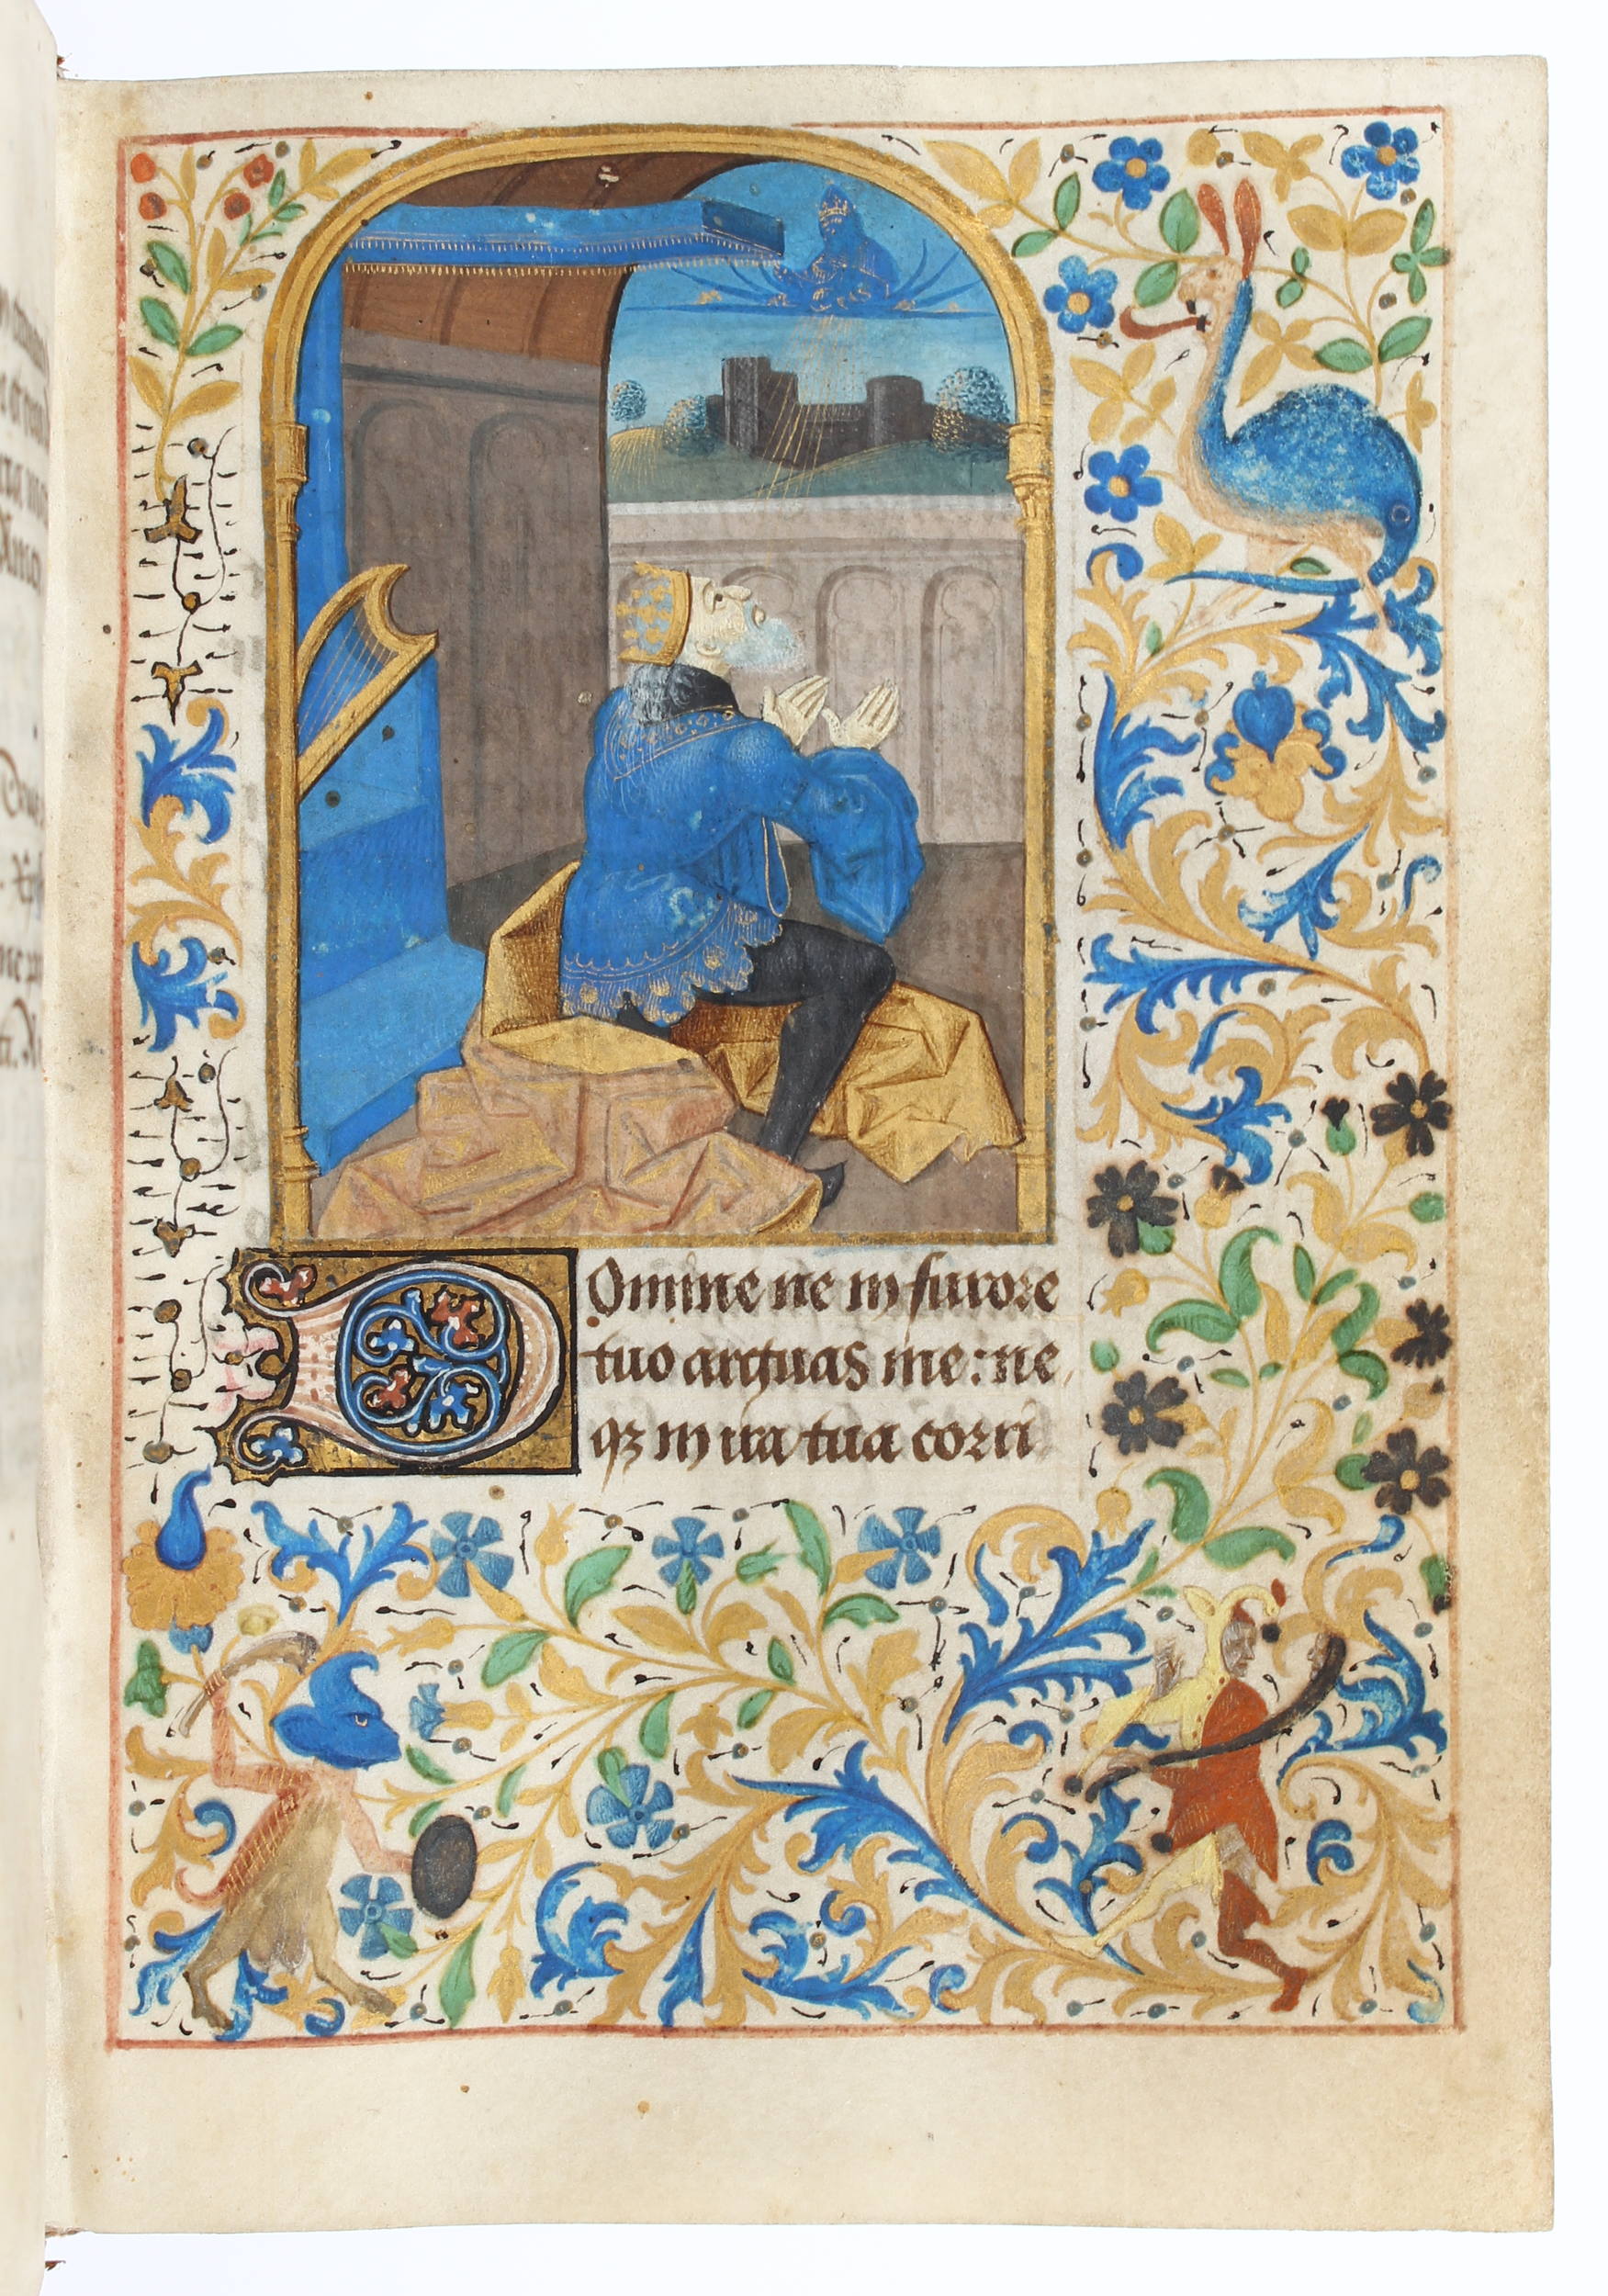 Domine ne in furore
tuo arguas me: ne
qꝫ in ira tua corri